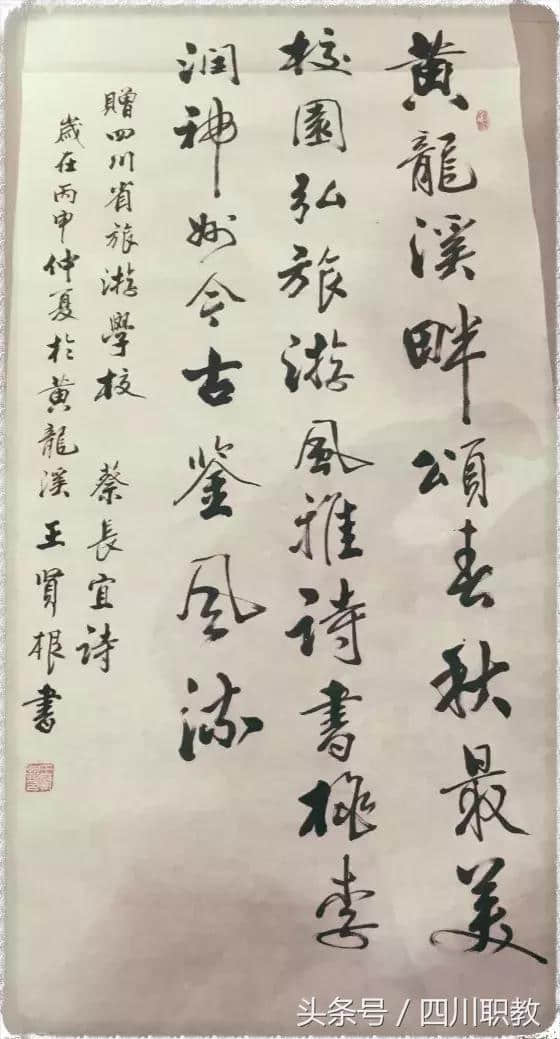 黄龍溪畔頌春秋最美
校園弘旅游風雅詩書桃李
润神州今古鉴风流
贈四川省旅游學校 蔡長宜詩
歲在丙申仲夏於黄龍溪王贤根書
头条号 / 四川职教